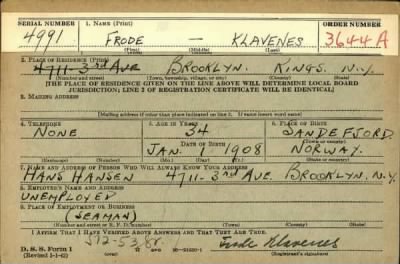 SERIAL NUMBER 1. NAME (Print) ORDER NUMBER
4991 FRODE — KLAVENES 3644 A
(First) (Middle) (Last)
2. PLACE OF RESIDENCE (Print)
4711-3rd AVE BROOKLYN. KINGS. N.Y.
(Number and street) (Town, township, village, or city) (County) (State)
[THE PLACE OF RESIDENCE GIVEN ON THE LINE ABOVE WILL DETERMINE LOCAL BOARD
JURISDICTION; LINE 2 OF REGISTRATION CERTIFICATE WILL BE IDENTICAL]
3. MAILING ADDRESS
[Mailing address if other than place indicated on line 2. If same insert word same]
4. TELEPHONE 5. AGE IN YEARS 6. PLACE OF BIRTH
NONE 34 SANDEFJORD
DATE OF BIRTH (Town or county)
JAN. 1 1908 NORWAY.
(Exchange) (Number) (Mo.) (Day) (Yr.) (State or country)
7. NAME AND ADDRESS OF PERSON WHO WILL ALWAYS KNOW YOUR ADDRESS
HANS HANSEN 4711-3rd AVE. BROOKLYN. N.Y.
8. EMPLOYER'S NAME AND ADDRESS
UNEMPLOYED
9. PLACE OF EMPLOYMENT OR BUSINESS
(SEAMAN)
(Number and street or R. F. D. number) (Town) (County) (State)
I AFFIRM THAT I HAVE VERIFIED ABOVE ANSWERS AND THAT THEY ARE TRUE.
D. S. S. Form 1 Frode Klavenes
(Revised 1-1-42) (over) (Registrant's signature)